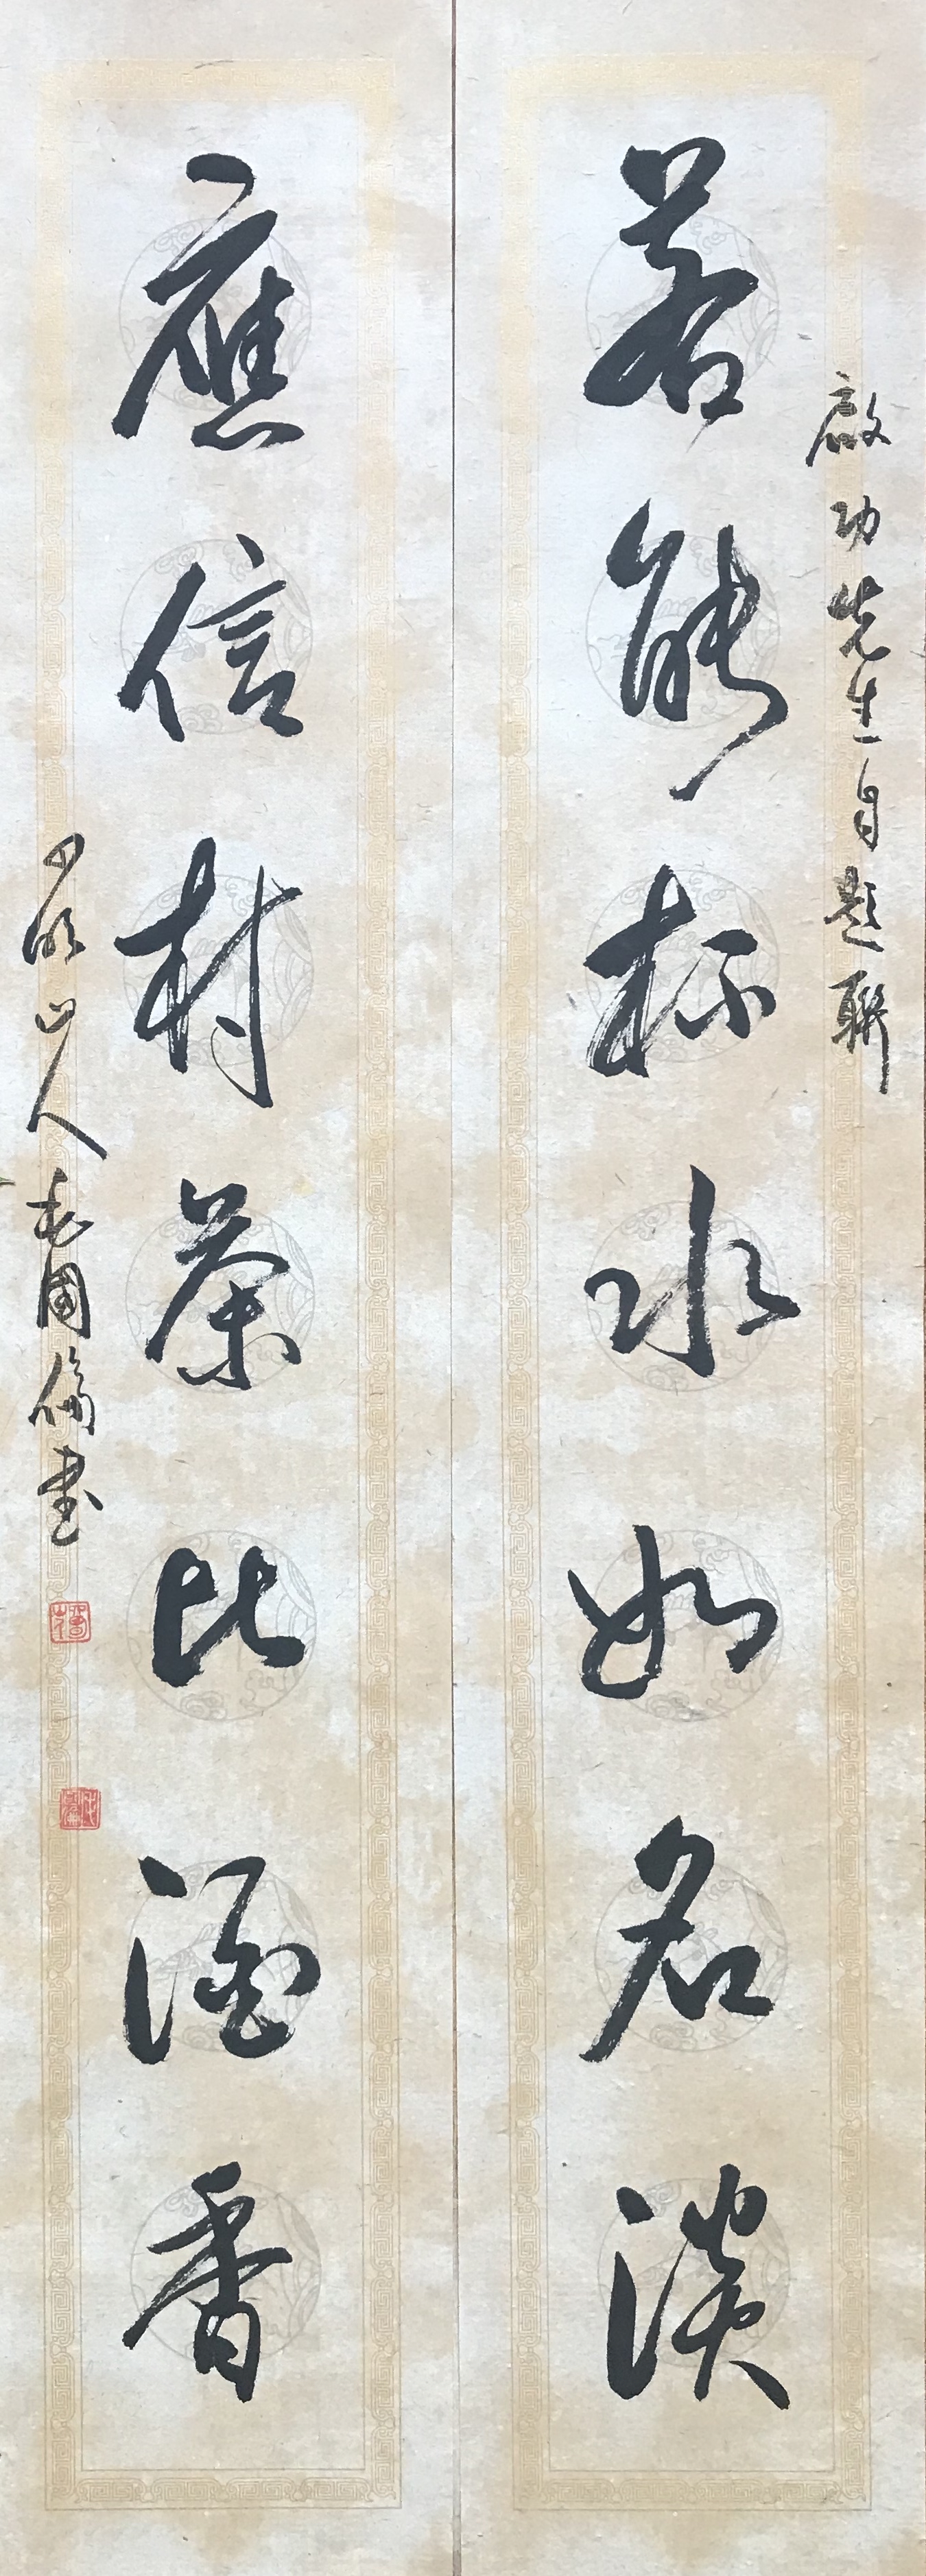 啟功先生自題聯
若能杯水如名淡
應信村茶比酒香
山人毛國倫書